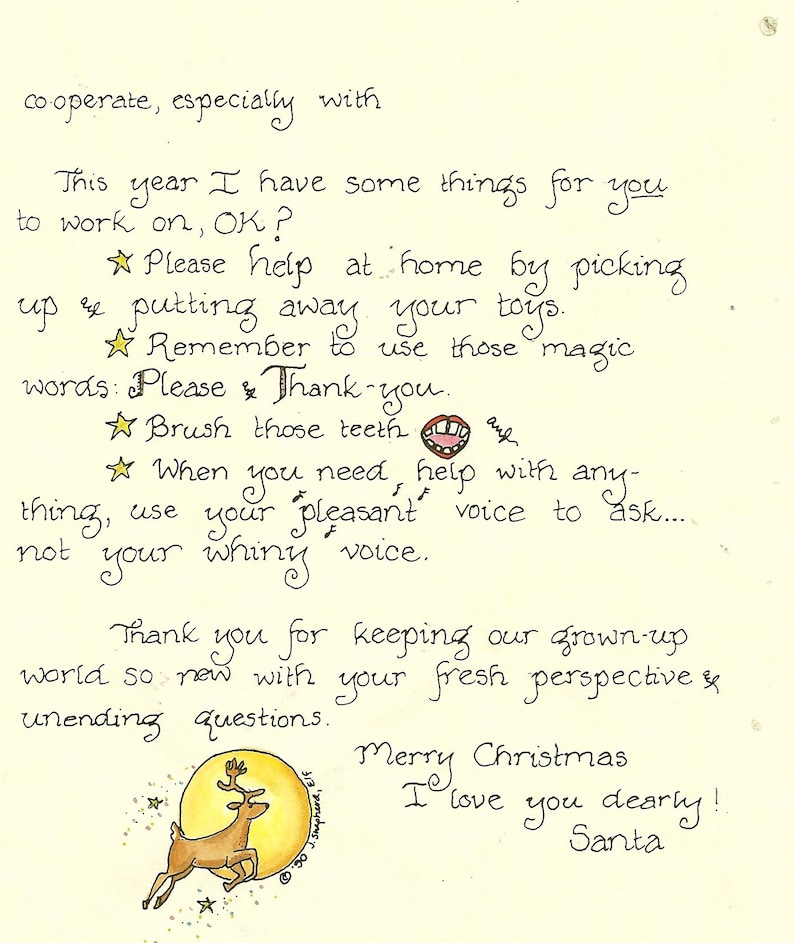 co-operate, especially with
This year I have some things for you
to work on, OK?
Please help at home by picking
up & putting away your toys.
Remember to use those magic
words: Please & Thank-you.
Brush those teeth and
When you need help with any-
thing, use your pleasant voice to ask...
not your whiny voice.
Thank you for keeping our grown-up
world so new with your fresh perspective &
unending questions.
Merry Christmas
I love you dearly!
Santa
© '90 J. Shepherd, Elf